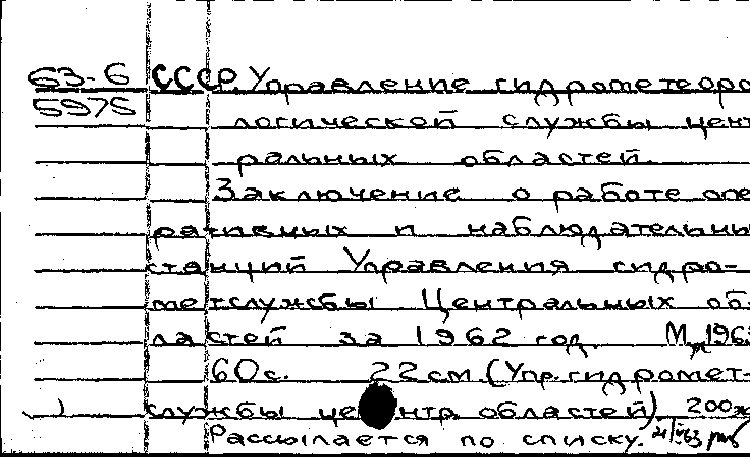 63-6 СССР. Управление гидрометеоро
5975
логической службы цент
ральных областей.
Заключение о работе опе
ративных и наблюдательны
станций Управления гидро-
метслужбы Центральных об-
ластей за 1962 год. М., 1963
60 с. 22 см. (Упр. гидромет-
службы центр. областей). 200
Рассылается по списку.